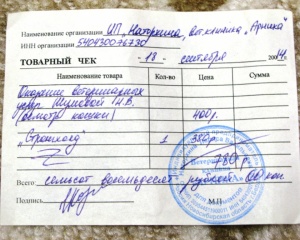 Наименование организации ИП „Каторкина, Вет. клиника „Арника"
ИНН организации 540430076730
ТОВАРНЫЙ ЧЕК "18" сентября 2014
Наименование товара Кол-во Цена Сумма
Оказание ветеринарных
услуг Шумовой Н.В.
(осмотр кошки) 400р.
„Стронгхолд" 1 380р.
780р.
Всего: семьсот восемьдесят рублей 00 коп
Подпись М.П.